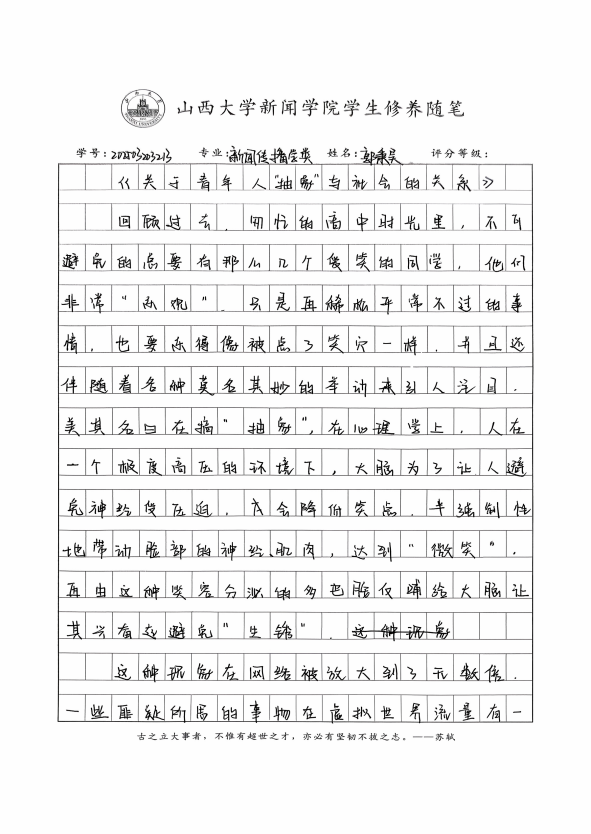 山西大学新闻学院学生修养随笔
学号：202503203213 专业：新闻传播学类 姓名：郭秉昊 评分等级：
《关于青年人“抽象”与社会的关系》
回顾过去，匆忙的高中时光里，不可
避免的总要有那么几个傻笑的同学，他们
非常“乐观”，只是再稀松平常不过的事
情，也要乐得像被点了笑穴一样，并且还
伴随着各种莫名其妙的举动来引人注目，
美其名曰在搞“抽象”，在心理学上，人在
一个极度高压的环境下，大脑为了让人避
免神经受压迫，会降低笑点，半强制性
地带动脸部的神经、肌肉，达到“微笑”，
再由这种笑容分泌的多巴胺反哺给大脑让
其兴奋避免“生锈”。这种现象
这种现象在网络被放大到了无数倍，
一些匪夷所思的事物在虚拟世界流量有一
古之立大事者，不惟有超世之才，亦必有坚韧不拔之志。——苏轼